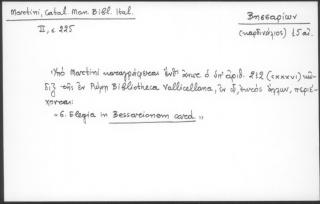 Martini, Catal. Man. Bibl. Ital.
II, σ 225
Βησσαρίων
(καρδινάλιος) 15 αἰ.
Ὑπὸ Martini καταγράφεται ὁ ὑπ' ἀριθ. 212 (CXXXVI) κῶ-
διξ τῆς ἐν Ρώμῃ Bibliotheca Vallicellana, ἐν ᾧ, περιέ-
χονται:
«6. Elegia in Bessarionem card.»